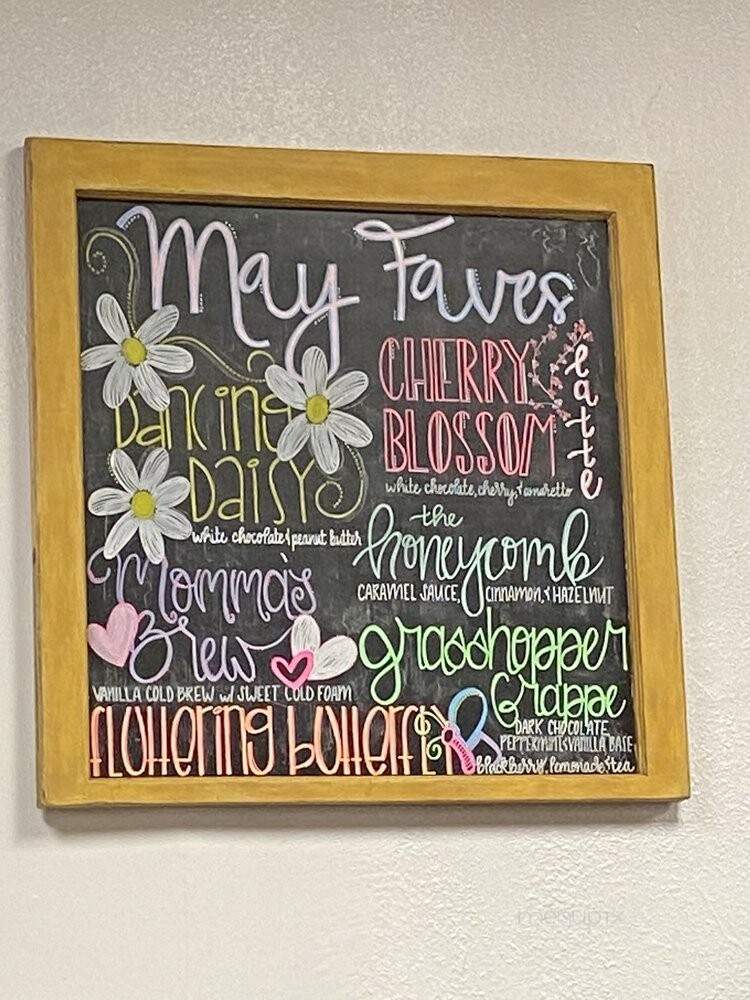 May Faves
Dancing
Daisy
white chocolate & peanut butter
CHERRY
BLOSSOM
latte
white chocolate, cherry, & amaretto
Momma's
Brew
VANILLA COLD BREW w/ SWEET COLD FOAM
the
honeycomb
CARAMEL SAUCE, cinnamon, & HAZELNUT
grasshopper
Grappe
DARK CHOCOLATE
PEPPERMINT & VANILLA BASE
fluttering butterfly
blackberry, lemonade & tea